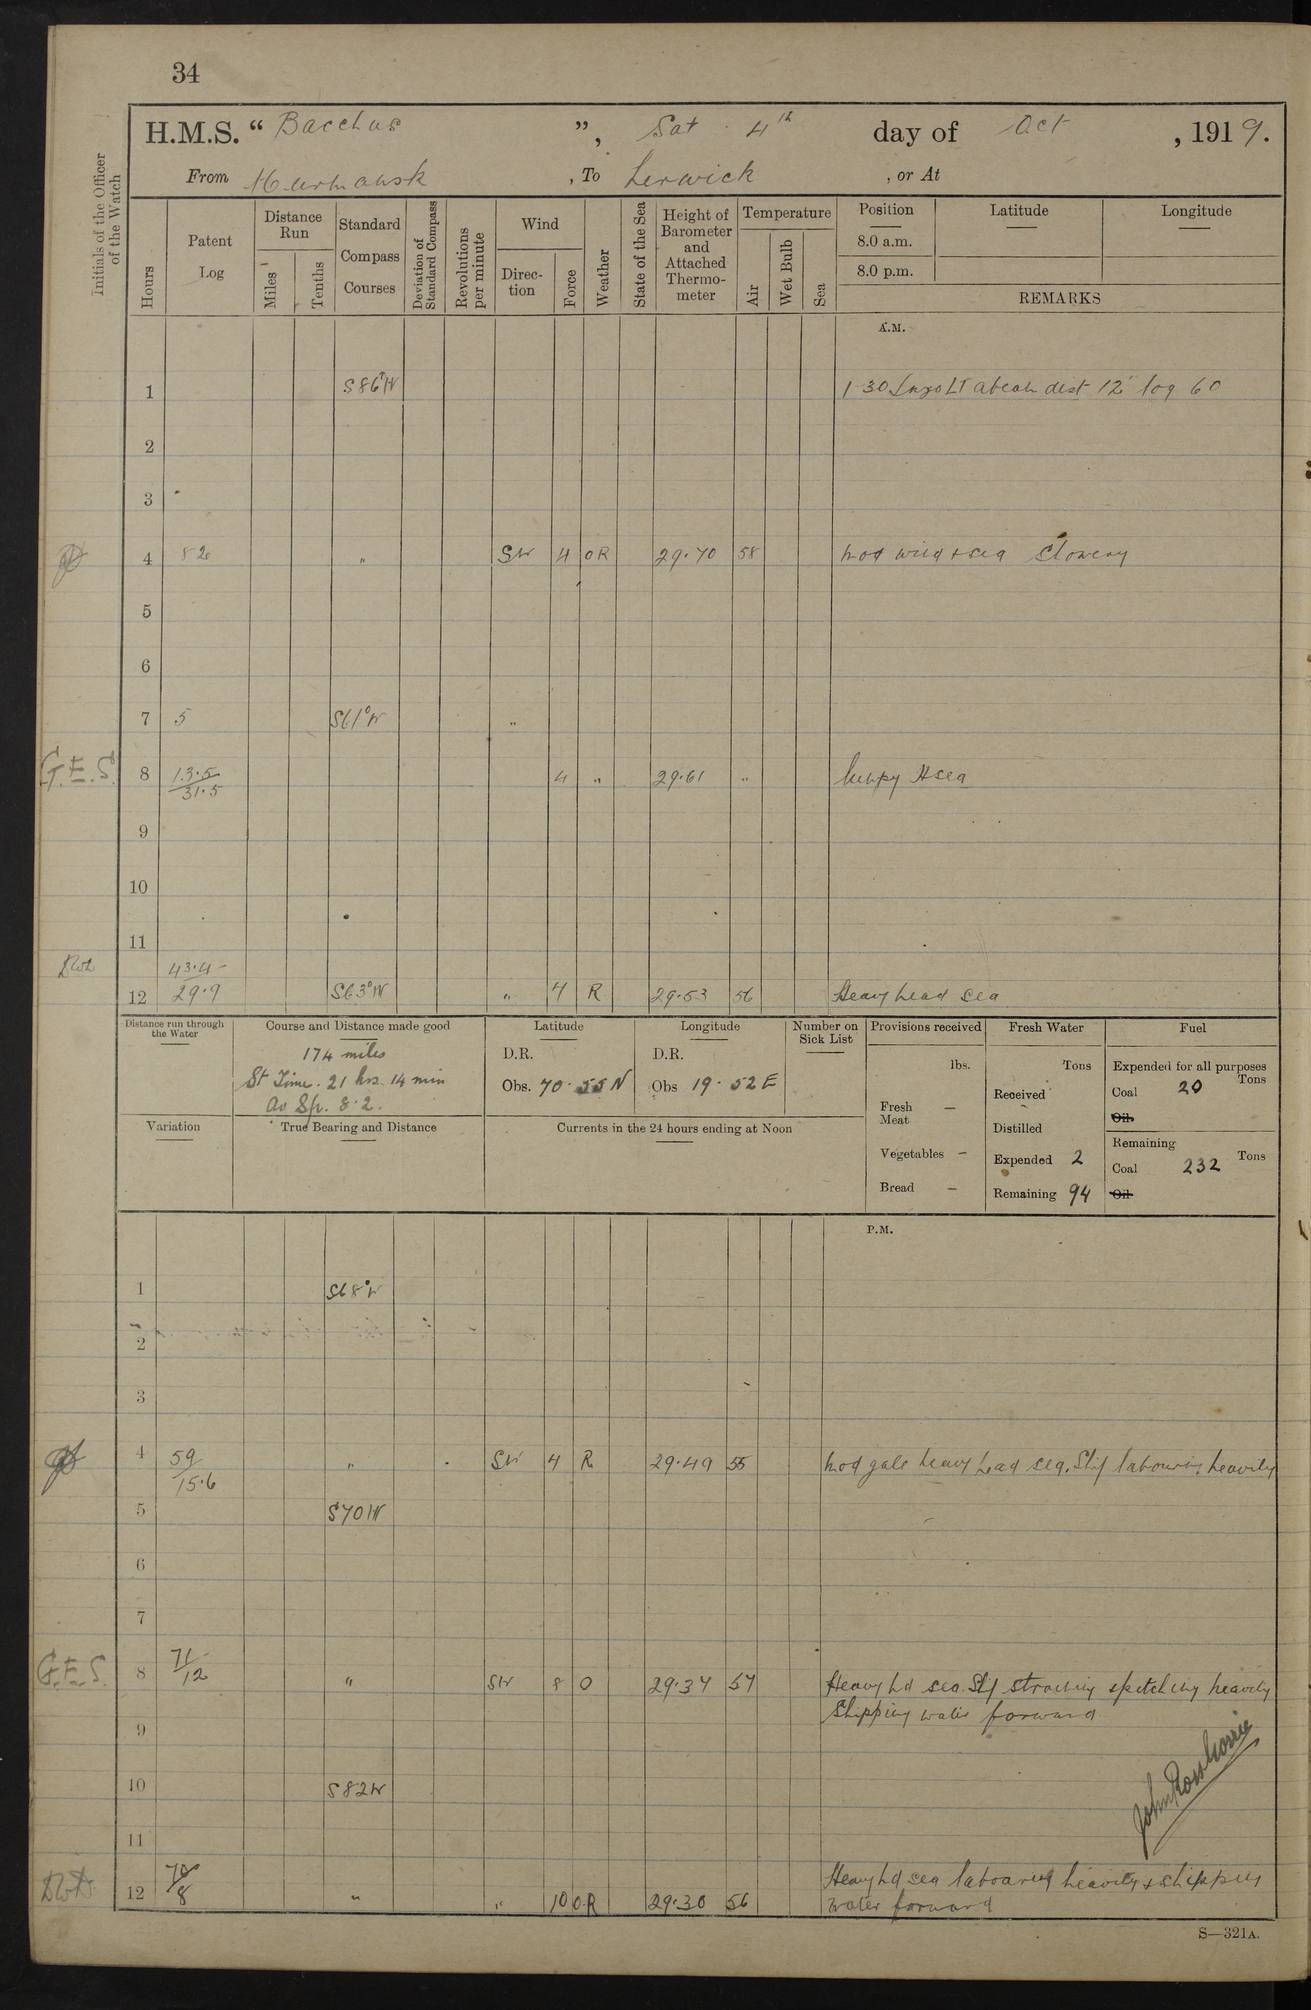 34
H.M.S. “ Bacchus ”, Sat 4th day of Oct , 1919.
From Murmansk , To Lerwick , or At
Initials of the Officer of the Watch
Hours
Patent Log
Distance Run
Miles
Tenths
Standard Compass Courses
Deviation of Standard Compass
Revolutions per minute
Wind
Direc-tion
Force
Weather
State of the Sea
Height of Barometer and Attached Thermo-meter
Temperature
Air
Wet Bulb
Sea
Position
Latitude
Longitude
8.0 a.m.
8.0 p.m.
REMARKS
A.M.
1 S86°W 1-30 LT abeam dist 12" log 60
2
3
4 82 " SW 4 OR 29.70 58 Mod wind & sea Showery
5
6
7 5 S61°W "
G.E.S. 8 13.5 4 " 29.61 " lumpy H sea
31.5
9
10
11
43.4
12 29.9 S63°W " 4 R 29.53 56 Heavy head sea
Distance run through the Water
Course and Distance made good
174 miles
St Time. 21 hrs. 14 min
Av Sp. 8.2.
Latitude
D.R.
Obs. 70. 55 N
Longitude
D.R.
Obs 19. 52 E
Number on Sick List
Provisions received
lbs.
Fresh Meat —
Vegetables —
Bread —
Fresh Water
Tons
Received
Distilled
Expended 2
Remaining 94
Fuel
Expended for all purposes
Tons
Coal 20
Oil.
Remaining
Tons
Coal 232
Oil
Variation
True Bearing and Distance
Currents in the 24 hours ending at Noon
P.M.
1 S68°W
2
3
4 59 " SW 4 R 29.49 55 Mod gale heavy head sea. Ship labouring heavily
15.6
5 S70W
6
7
G.E.S. 8 71 " SW 8 O 29.37 57 Heavy hd sea. Ship straining & pitching heavily
12 Shipping water forward
9
10 S82W
11
John Ross
Heavy hd sea labouring heavily & shipping
12 8 " " 10 O.R 29.30 56 water forward
S—321A.